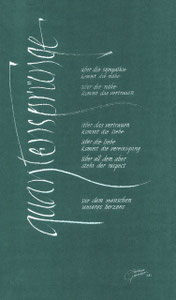 quastensprünge
über die sympathie
kommt die nähe
über die nähe
kommt das vertrauen
über das vertrauen
kommt die liebe
über die liebe
kommt die vereinigung
über all dem aber
steht der respect
vor dem menschen
unseres herzens